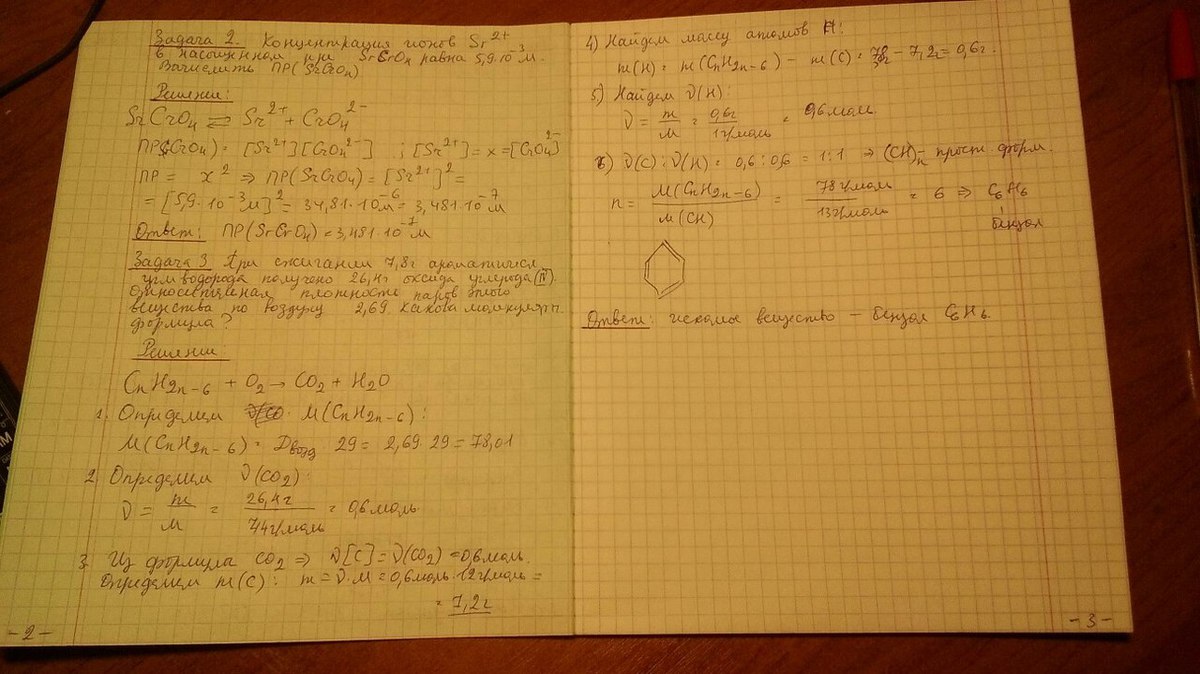 Задача 2. Концентрация ионов Sr²⁺
в насыщенном при SrCrO₄ равна 5,9·10⁻³ М.
Вычислить ПР(SrCrO₄)
Решение:
SrCrO₄ ⇄ Sr²⁺ + CrO₄²⁻
ПР(SrCrO₄) = [Sr²⁺][CrO₄²⁻] ; [Sr²⁺] = x = [CrO₄²⁻]
ПР = x² ⇒ ПР(SrCrO₄) = [Sr²⁺]² =
= [5,9·10⁻³М]² = 34,81·10⁻⁶М = 3,481·10⁻⁷М
Ответ: ПР(SrCrO₄) = 3,481·10⁻⁷М
Задача 3. При сжигании 7,8г ароматическ.
углеводорода получено 26,4г оксида углерода (IV).
Относительная плотность паров этого
вещества по воздуху 2,69. Какова молекулярн.
формула?
Решение:
CnH2n-6 + O₂ → CO₂ + H₂O
1. Определим M(CnH2n-6):
M(CnH2n-6) = Dвозд · 29 = 2,69·29 = 78,01
2. Определим ν(CO₂):
ν = m/M = 26,4г/44г/моль = 0,6моль
3. Из формулы CO₂ ⇒ ν[C] = ν(CO₂) = 0,6моль.
Определим m(C): m = ν·M = 0,6моль·12г/моль =
= 7,2г
- 2 -
4) Найдем массу атомов H:
m(H) = m(CnH2n-6) - m(C) = 78 - 7,2г = 0,6г.
5) Найдем ν(H):
ν = m/M = 0,6г/1г/моль = 0,6моль.
6) ν(C):ν(H) = 0,6:0,6 = 1:1 ⇒ (CH)n - прост. форм.
n = M(CnH2n-6)/M(CH) = 78г/моль/13г/моль = 6 ⇒ C₆H₆
бензол
Ответ: искомое вещество - бензол C₆H₆.
- 3 -